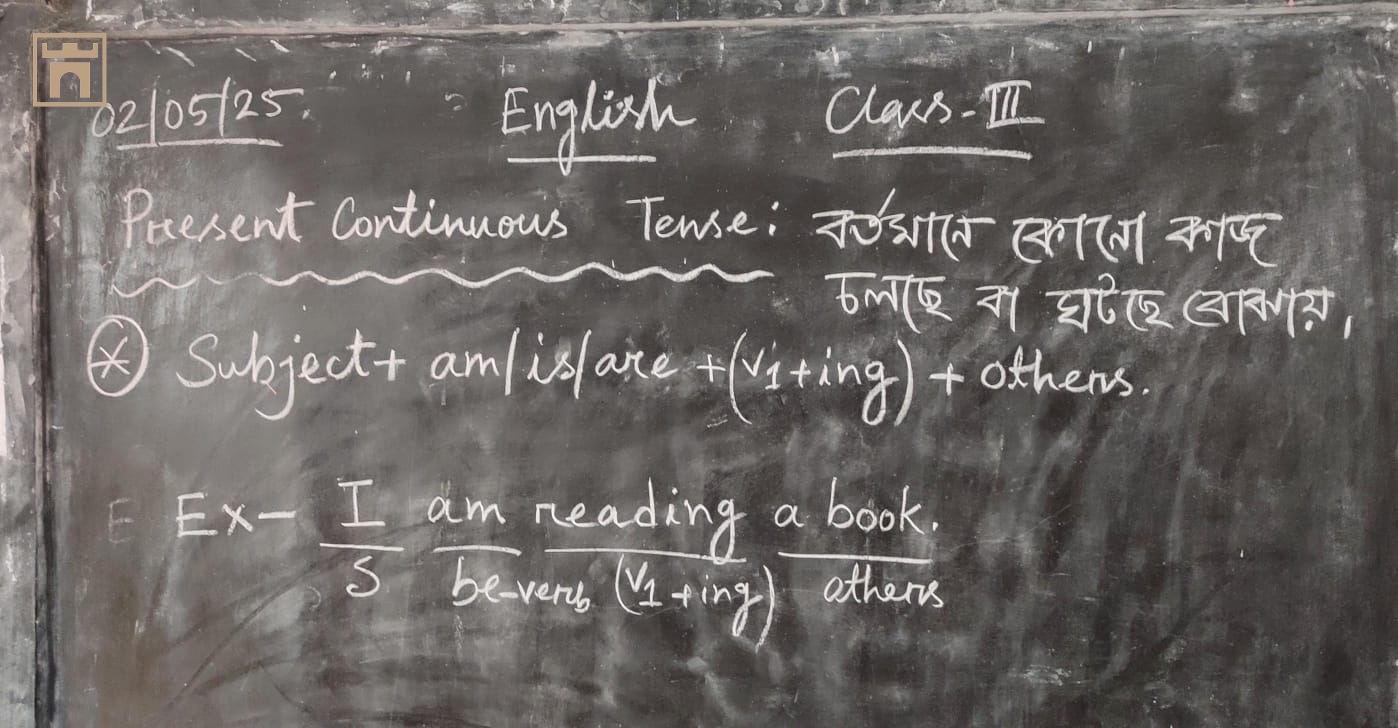 02/05/25 English Class-III
Present Continuous Tense: বর্তমানে কোনো কাজ
চলছে বা ঘটছে বোঝায়,
* Subject + am/is/are + (V1+ing) + others.
E Ex- I am reading a book.
S be-verb (V1+ing) others